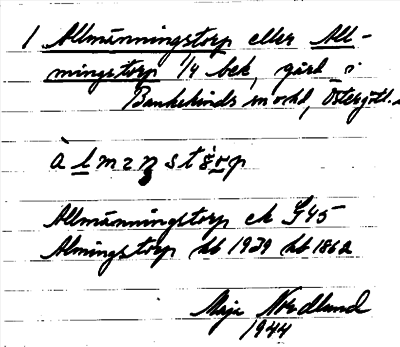 1 Allmänningstorp eller All-
mingstorp 1/4 bek, gård i
Bankekinds sn och hd, Östergötl.
Allmänningstorp ek G45
Almingstorp hb 1929 hb 1862
Maja Nordlund
1944